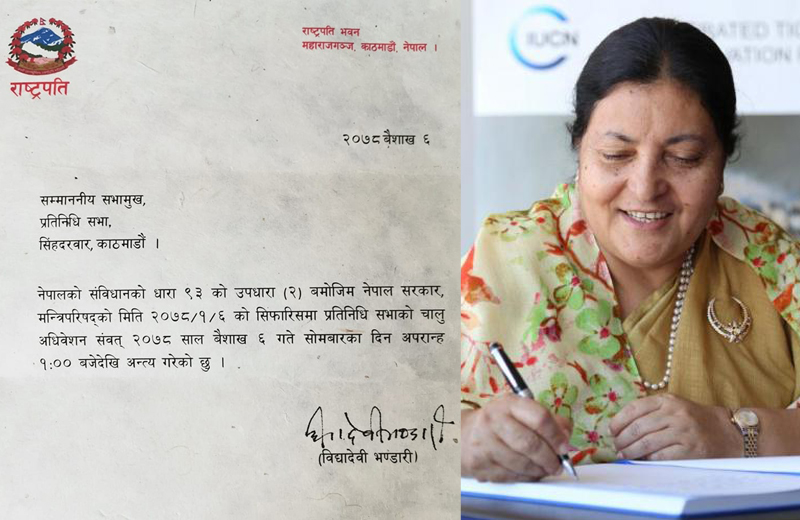 राष्ट्रपति
राष्ट्रपति भवन
महाराजगञ्ज, काठमाडौं, नेपाल ।
२०७८ बैशाख ६
सम्माननीय सभामुख,
प्रतिनिधि सभा,
सिंहदरवार, काठमाडौं ।
नेपालको संविधानको धारा ९३ को उपधारा (२) बमोजिम नेपाल सरकार,
मन्त्रिपरिषद्को मिति २०७८/१/६ को सिफारिसमा प्रतिनिधि सभाको चालु
अधिवेशन संवत् २०७८ साल बैशाख ६ गते सोमबारका दिन अपरान्ह
१:०० बजेदेखि अन्त्य गरेको छु ।
विद्यादेवी भण्डारी
(विद्यादेवी भण्डारी)
IUCN